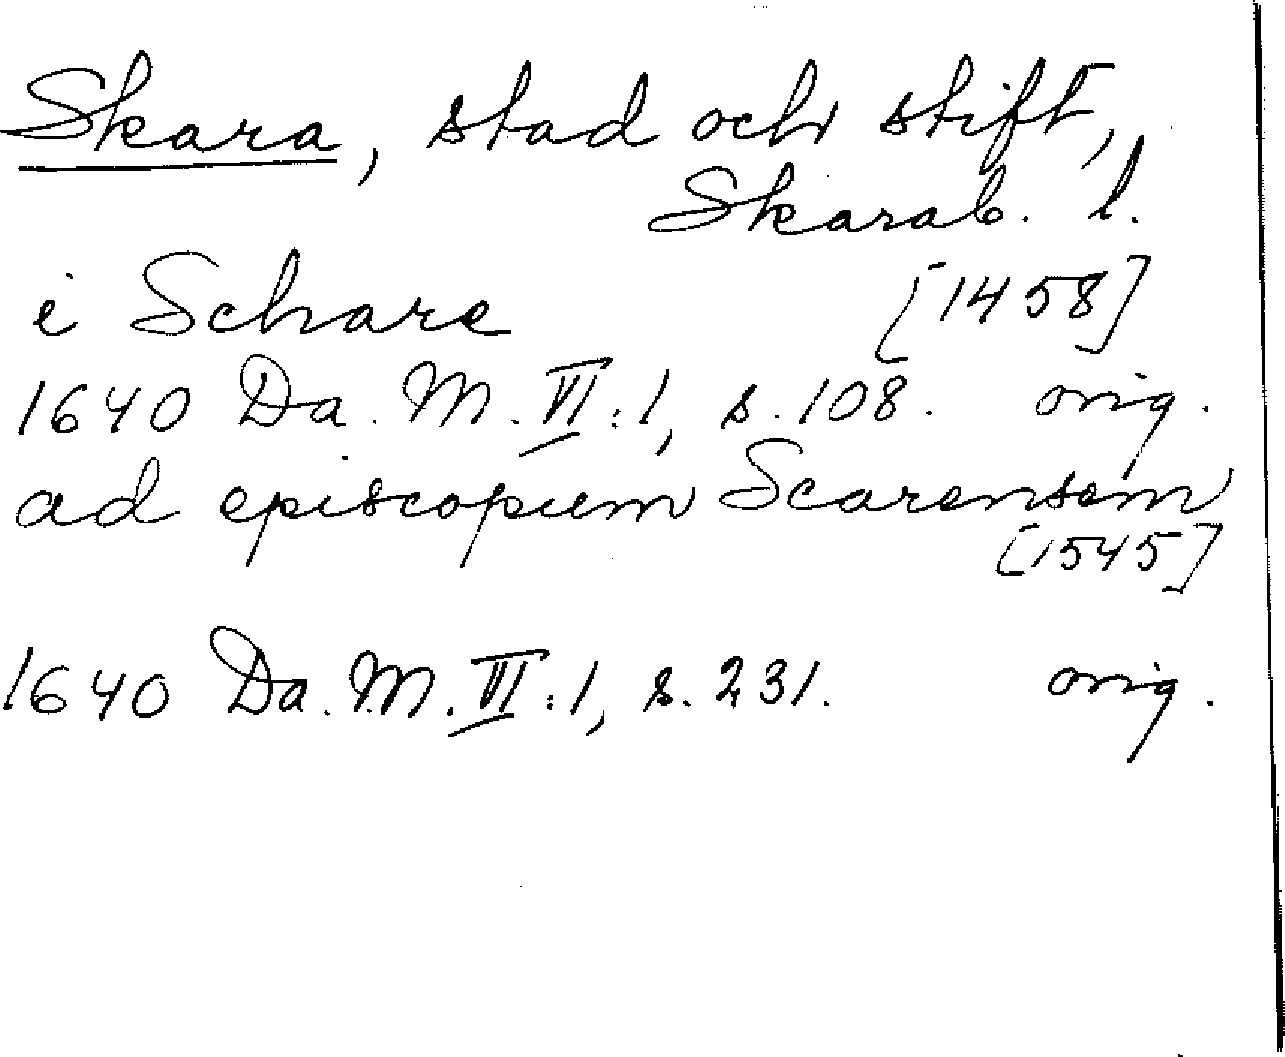 Skara, stad och stift,
Skarab. l.
i Schare [1458]
1640 Da. M. VI:1, s. 108. orig.
ad episcopum Scarensem
[1545]
1640 Da. M. VI:1, s. 231. orig.